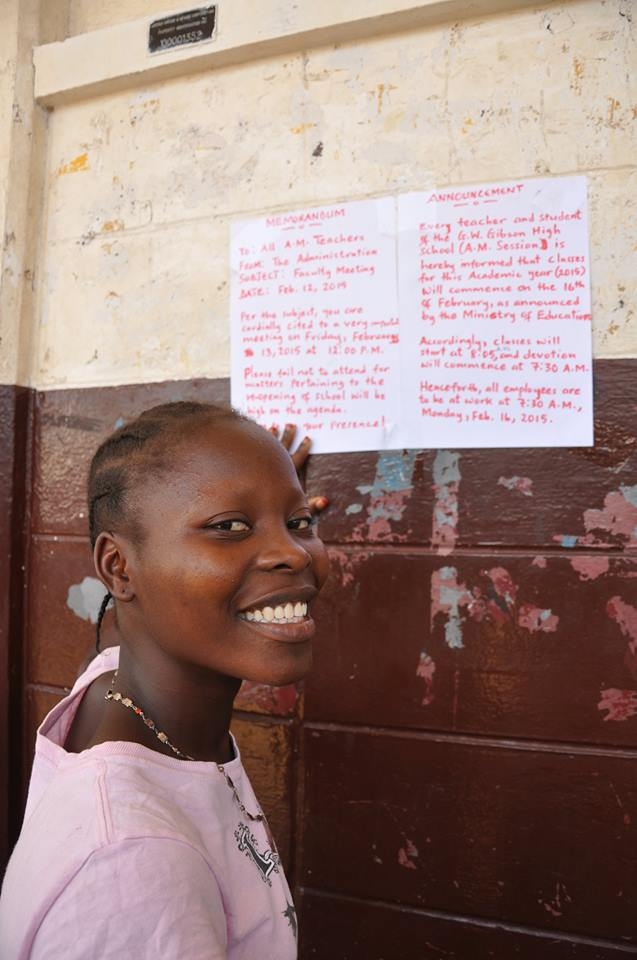 100001352
MEMORANDUM
To: All A.M. Teachers
FROM: The Administration
SUBJECT: Faculty Meeting
DATE: Feb. 12, 2015
Per the subject, you are
cordially cited to a very
meeting on Friday, February
13, 2015 at 12:00 P.M.
Please fail not to attend for
matters pertaining to the
re-opening of school will be
high on the agenda.
your presence!
ANNOUNCEMENT
Every teacher and student
of the G.W. Gibson High
school (A.M. Session) is
hereby informed that classes
for this Academic year (2015)
will commence on the 16th
of February, as announced
by the Ministry of Education.
Accordingly, classes will
start at 8:05, and devotion
will commence at 7:30 A.M.
Henceforth, all employees are
to be at work at 7:30 A.M.,
Monday, Feb. 16, 2015.